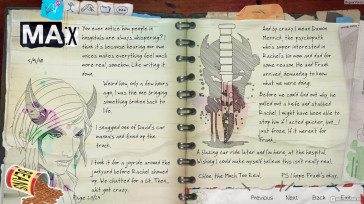 MAX
5/9/10
You ever notice how people in
hospitals are always whispering? I
think it's because hearing our own
voices makes everything feel much
more real, somehow. Like writing it
down.
Weird how, only a few hours
ago, I was the one bringing
something broken back to
life.
I snagged one of David's car
manuals and fixed up the
truck.
I took it for a joyride around the
junkyard before Rachel showed
up. We chatted for a bit. Then,
shit got crazy.
Page 13/13
And by crazy I mean Damon
Merrick, the psychopath
who's super interested in
Rachel's bio mom and dad for
some reason. He and Frank
arrived, demanding to know
what we were doing.
Before we could find out why, he
pulled out a knife and stabbed
Rachel. I might have been able to
stop him if I acted quicker, but... I
just froze. If it weren't for
Frank...
A blazing car ride later and I'm here, at the hospital.
Wishing I could make myself believe this isn't really real.
Chloe, the Much Too Real
PS I hope Frank's okay.
BEANS
Previous
Next
Back
Exit